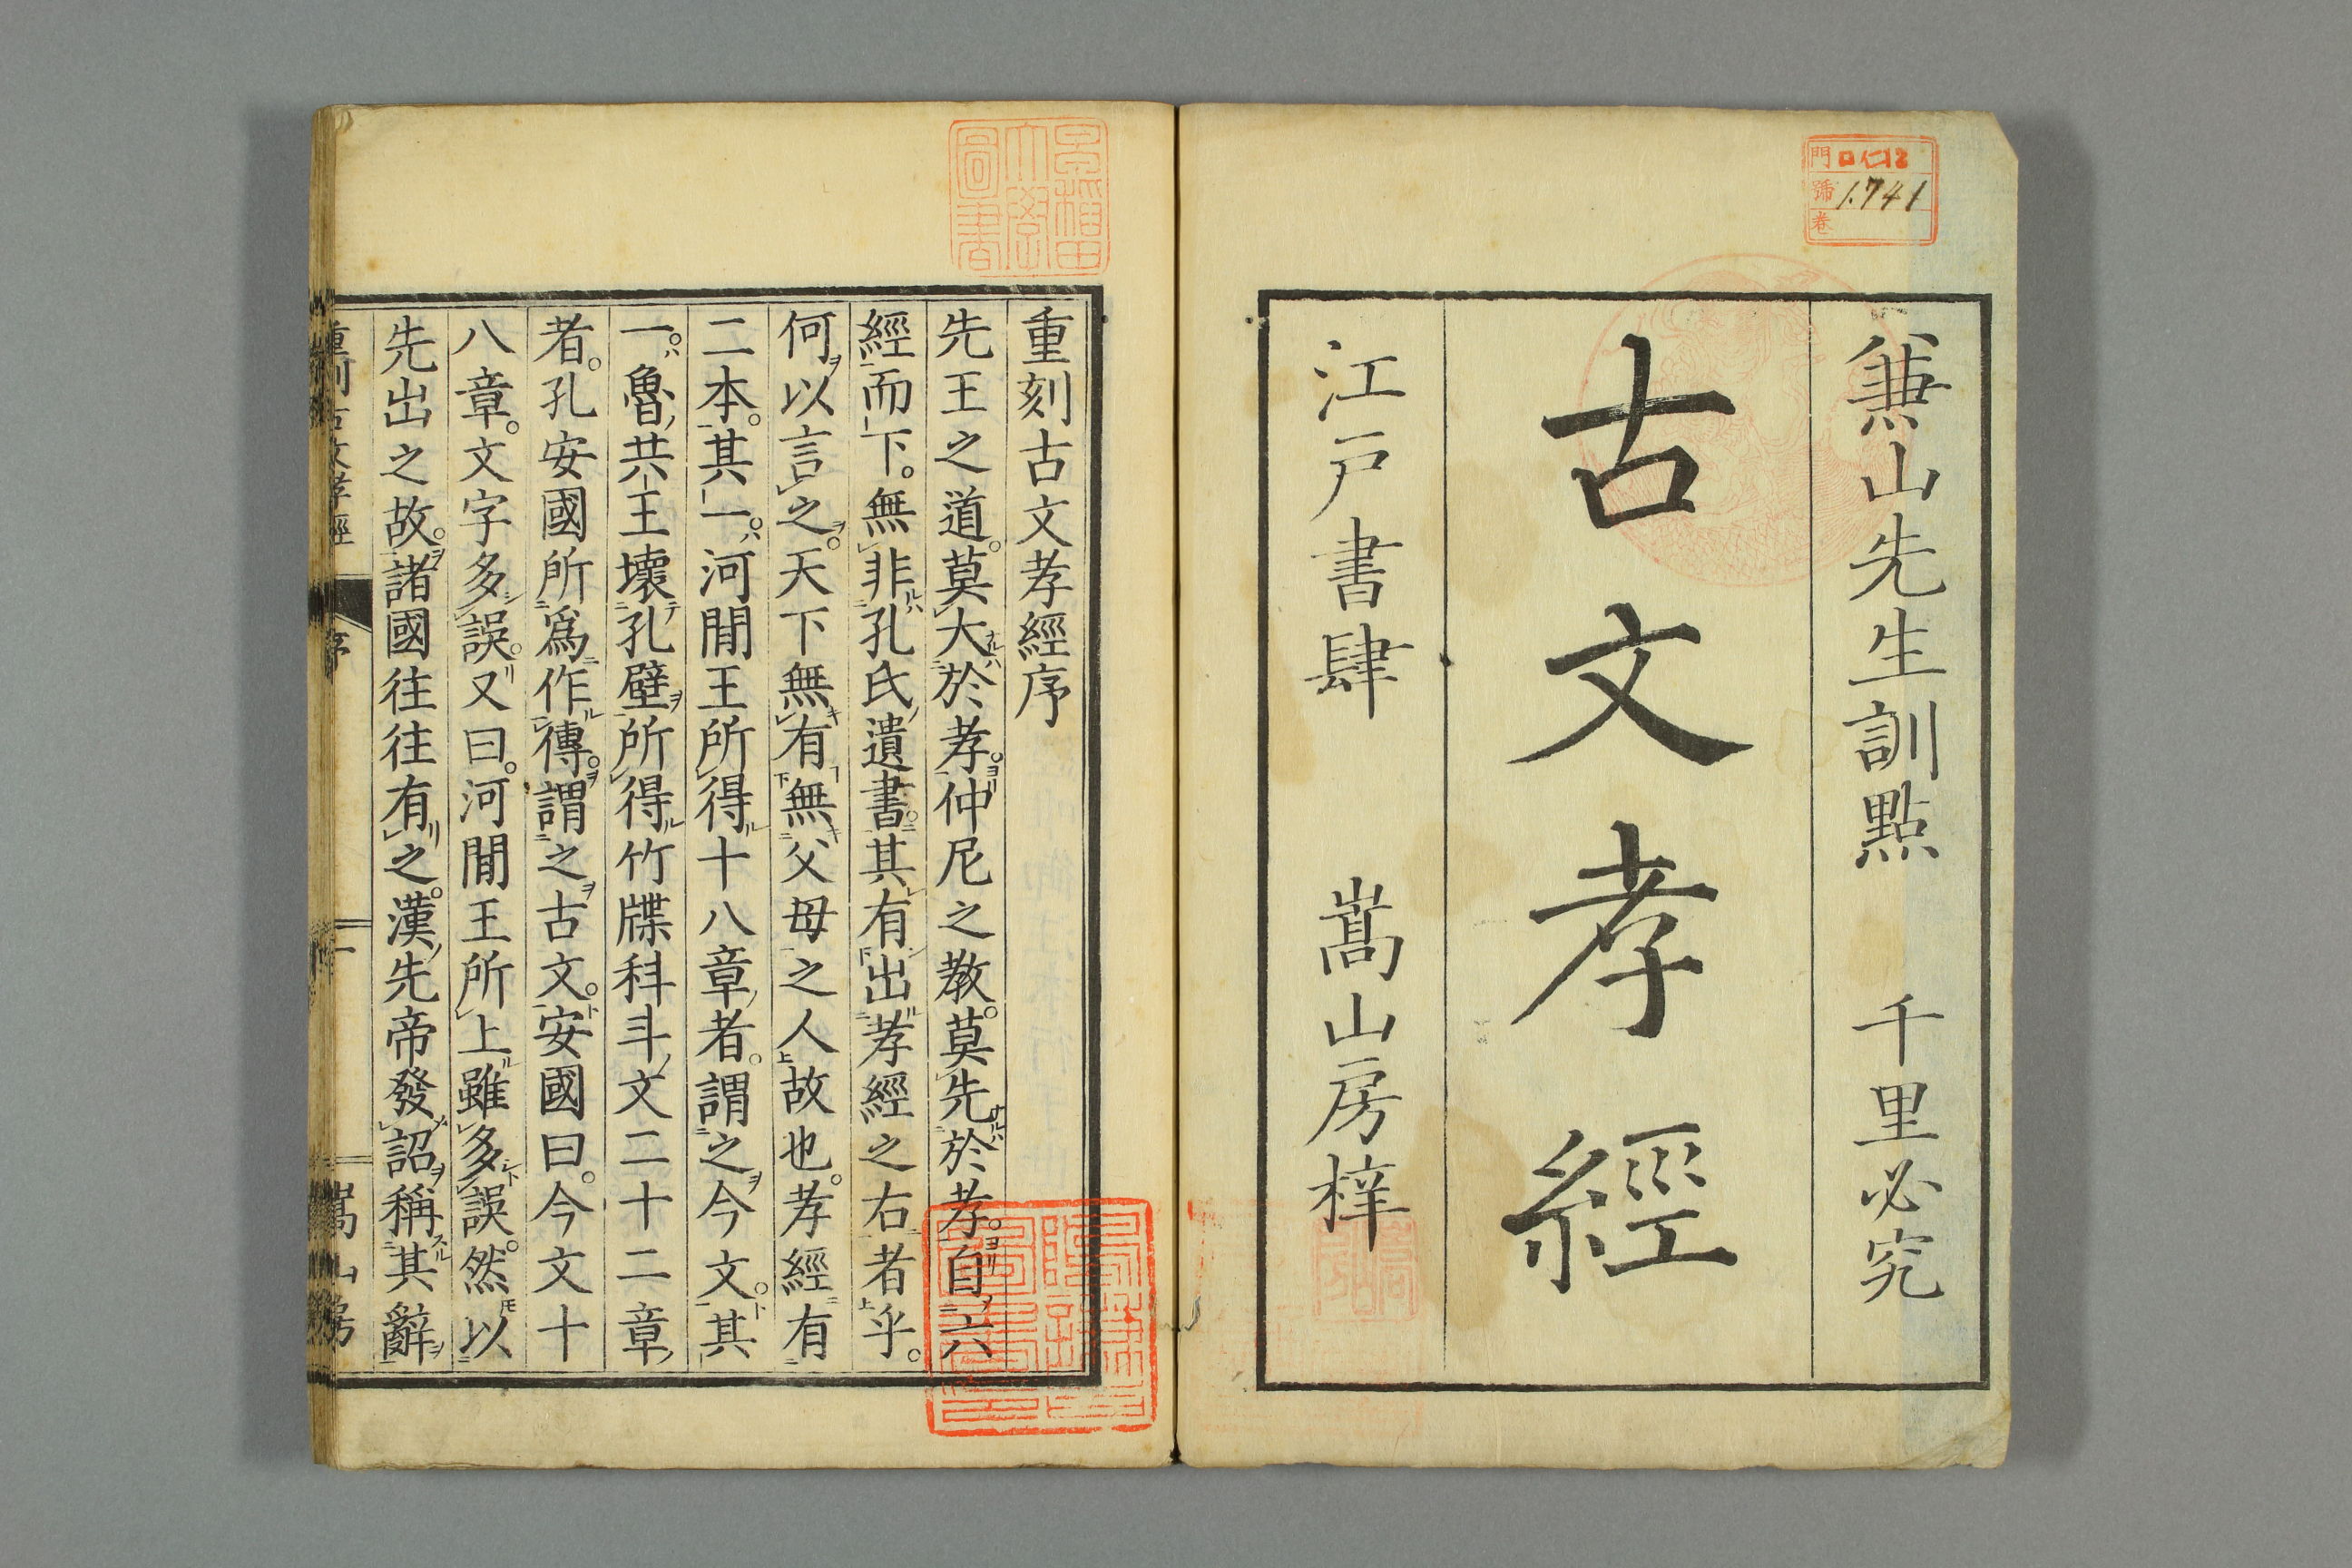 門 口仁12
號 1.741
卷
兼山先生訓點 千里必究
古文孝經
江戸書肆 嵩山房梓
早稲田大學圖書
重刻古文孝經序
先王之道。莫大於孝。仲尼之教。莫先於孝。自六
經而下。無非孔氏遺書。其有出孝經之右者乎。
何以言之。天下無有無父母之人故也。孝經有
二本。其一。河間王所得十八章者。謂之今文。其
一。魯共王壞孔壁所得竹牒科斗文二十二章
者。孔安國所爲作傳。謂之古文。安國曰。今文十
八章。文字多誤。又曰。河間王所上雖多誤。然以
先出之故。諸國往往有之。漢先帝發詔稱其辭
重刻古文孝經 序 一 嵩山房